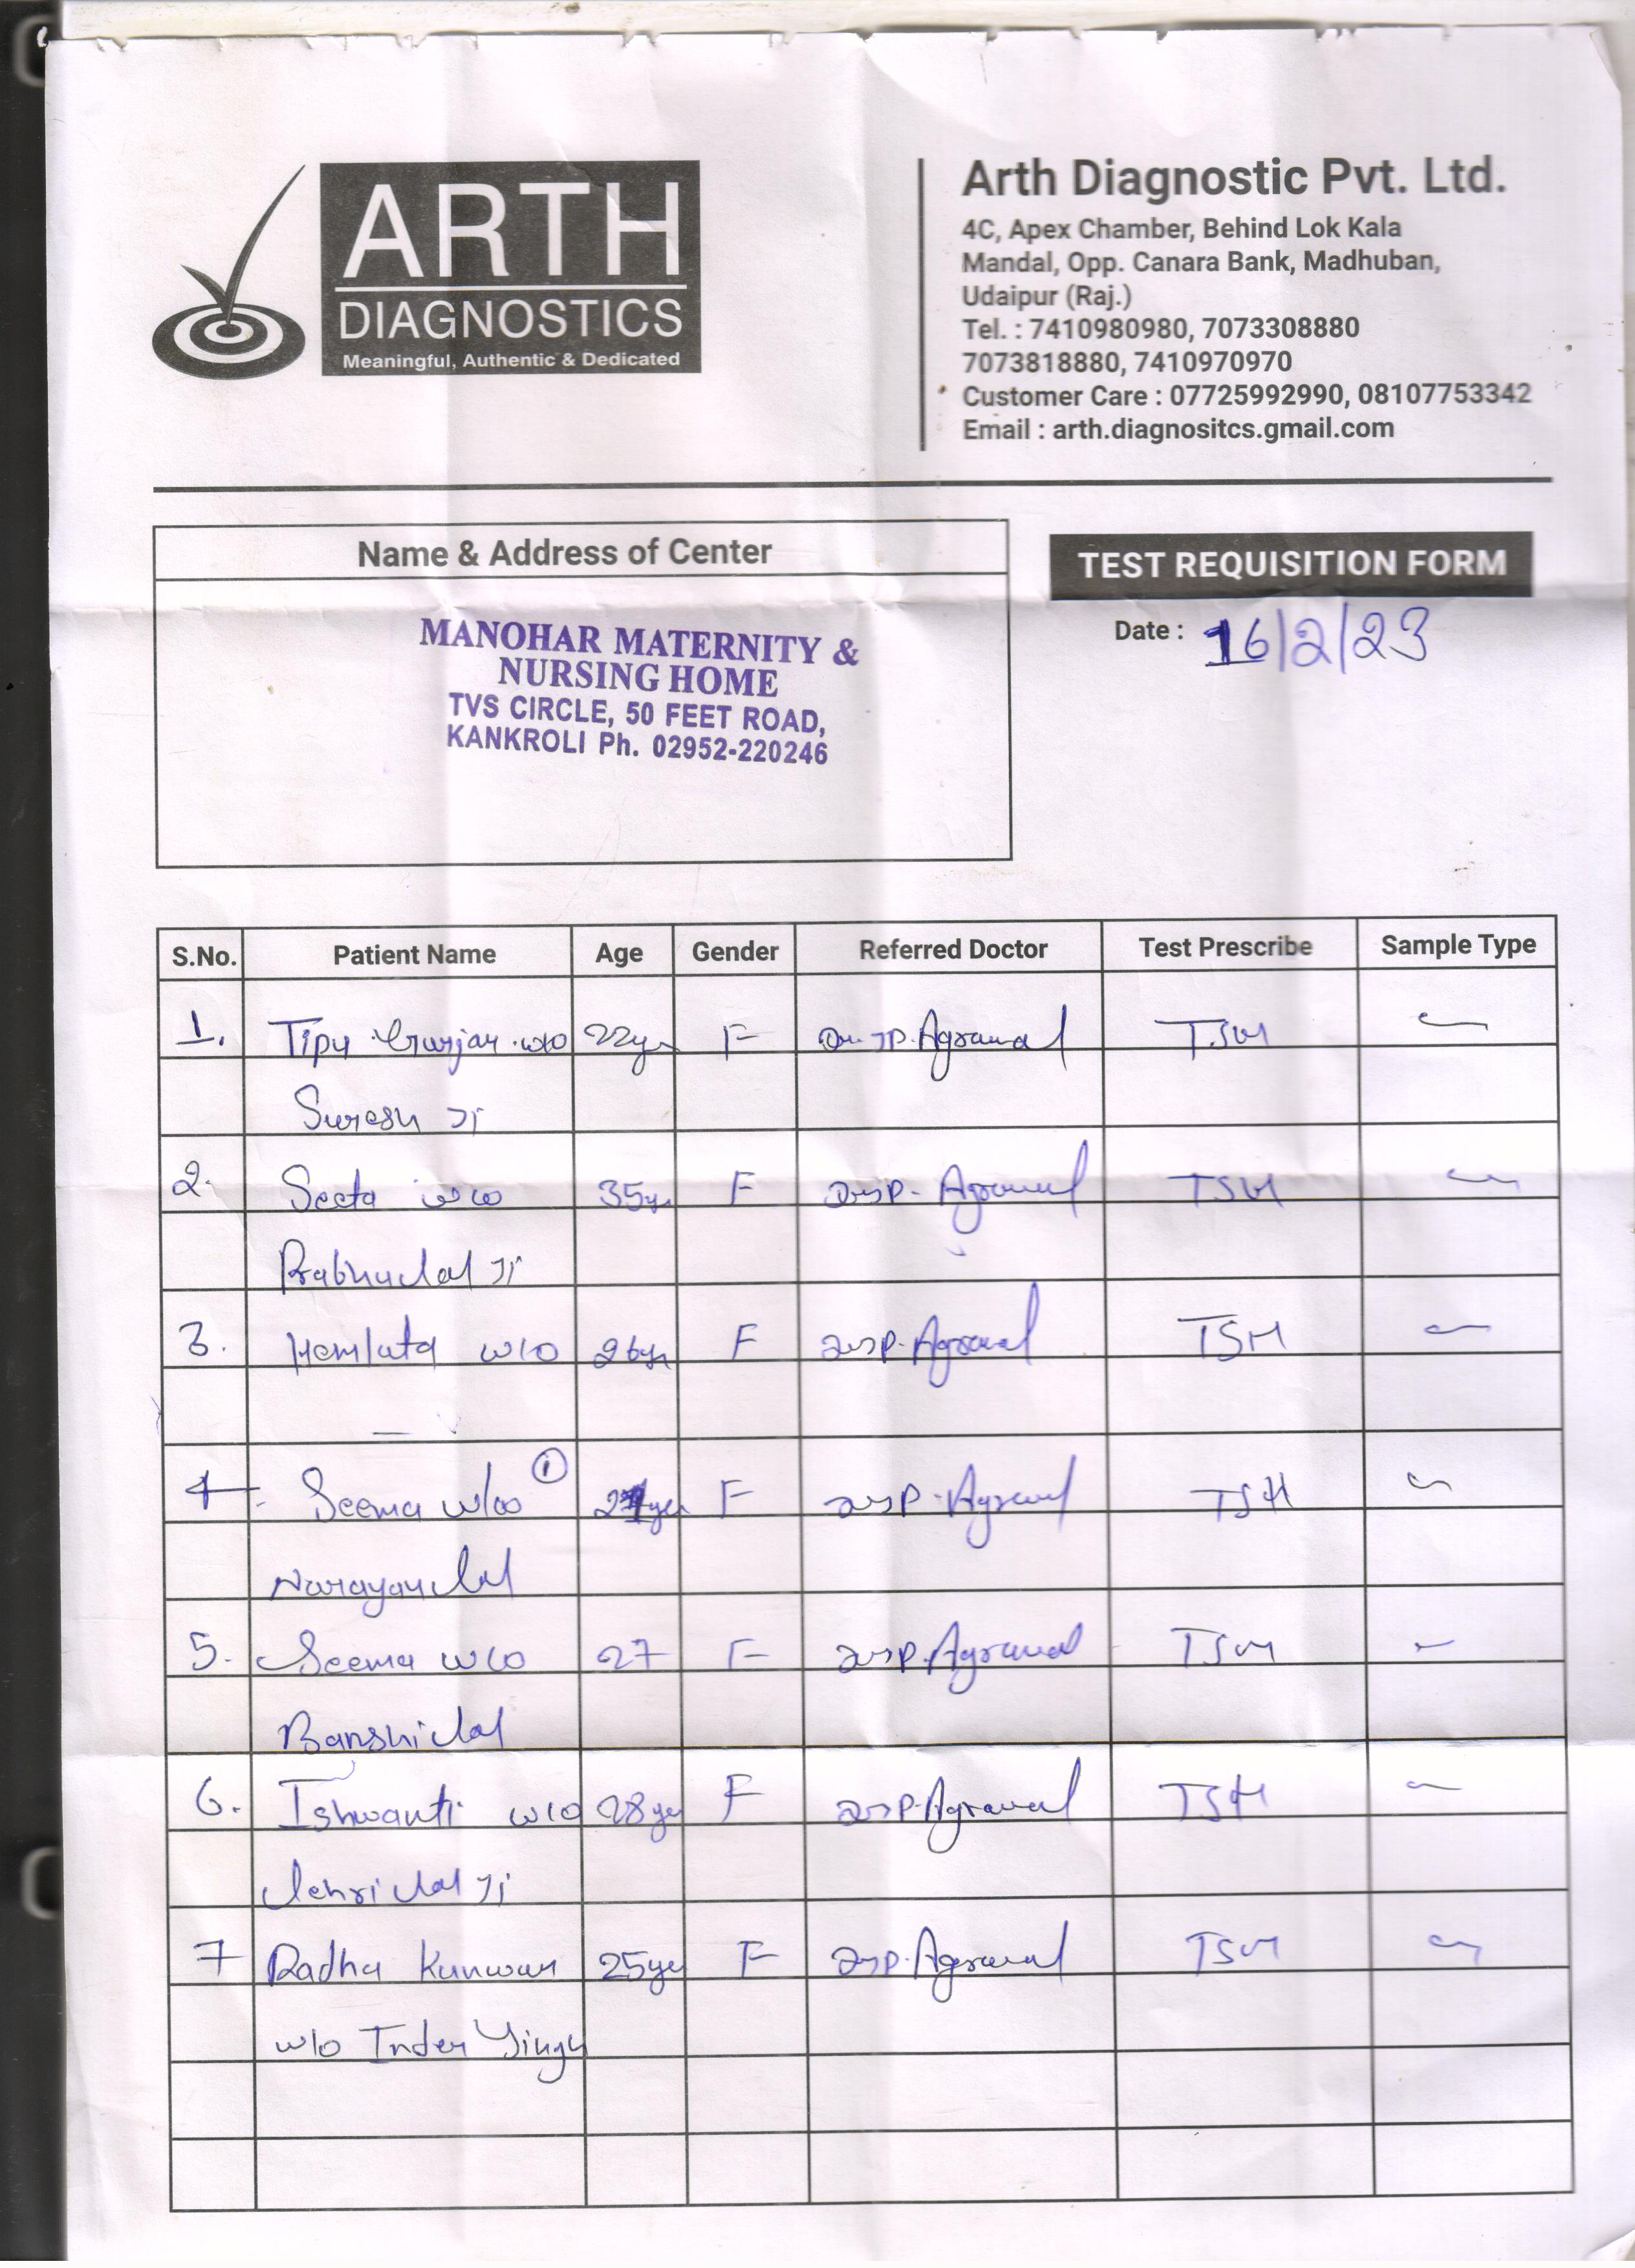 ARTH
DIAGNOSTICS
Meaningful, Authentic & Dedicated
Arth Diagnostic Pvt. Ltd.
4C, Apex Chamber, Behind Lok Kala
Mandal, Opp. Canara Bank, Madhuban,
Udaipur (Raj.)
Tel. : 7410980980, 7073308880
7073818880, 7410970970
Customer Care : 07725992990, 08107753342
Email : arth.diagnositcs.gmail.com
Name & Address of Center
MANOHAR MATERNITY &
NURSING HOME
TVS CIRCLE, 50 FEET ROAD,
KANKROLI Ph. 02952-220246
TEST REQUISITION FORM
Date : 16/2/23
S.No. Patient Name Age Gender Referred Doctor Test Prescribe Sample Type
1. Tipu Gurjar w/o 22yr F Agrawal TSH
Suresh Ji
2. Seeta w/o 35yr F Agrawal TSH
Prabhulal Ji
3. Hemlata w/o 26yr F Agrawal TSH
4. Seema w/o 1 F Agrawal TSH
Narayanlal
5. Seema w/o 27 F Agrawal TSH
Banshilal
6. Ishwanti w/o 28yr F Agrawal TSH
Ji
7 Radha Kunwar 25yr F Agrawal TSH
w/o Inder Singh